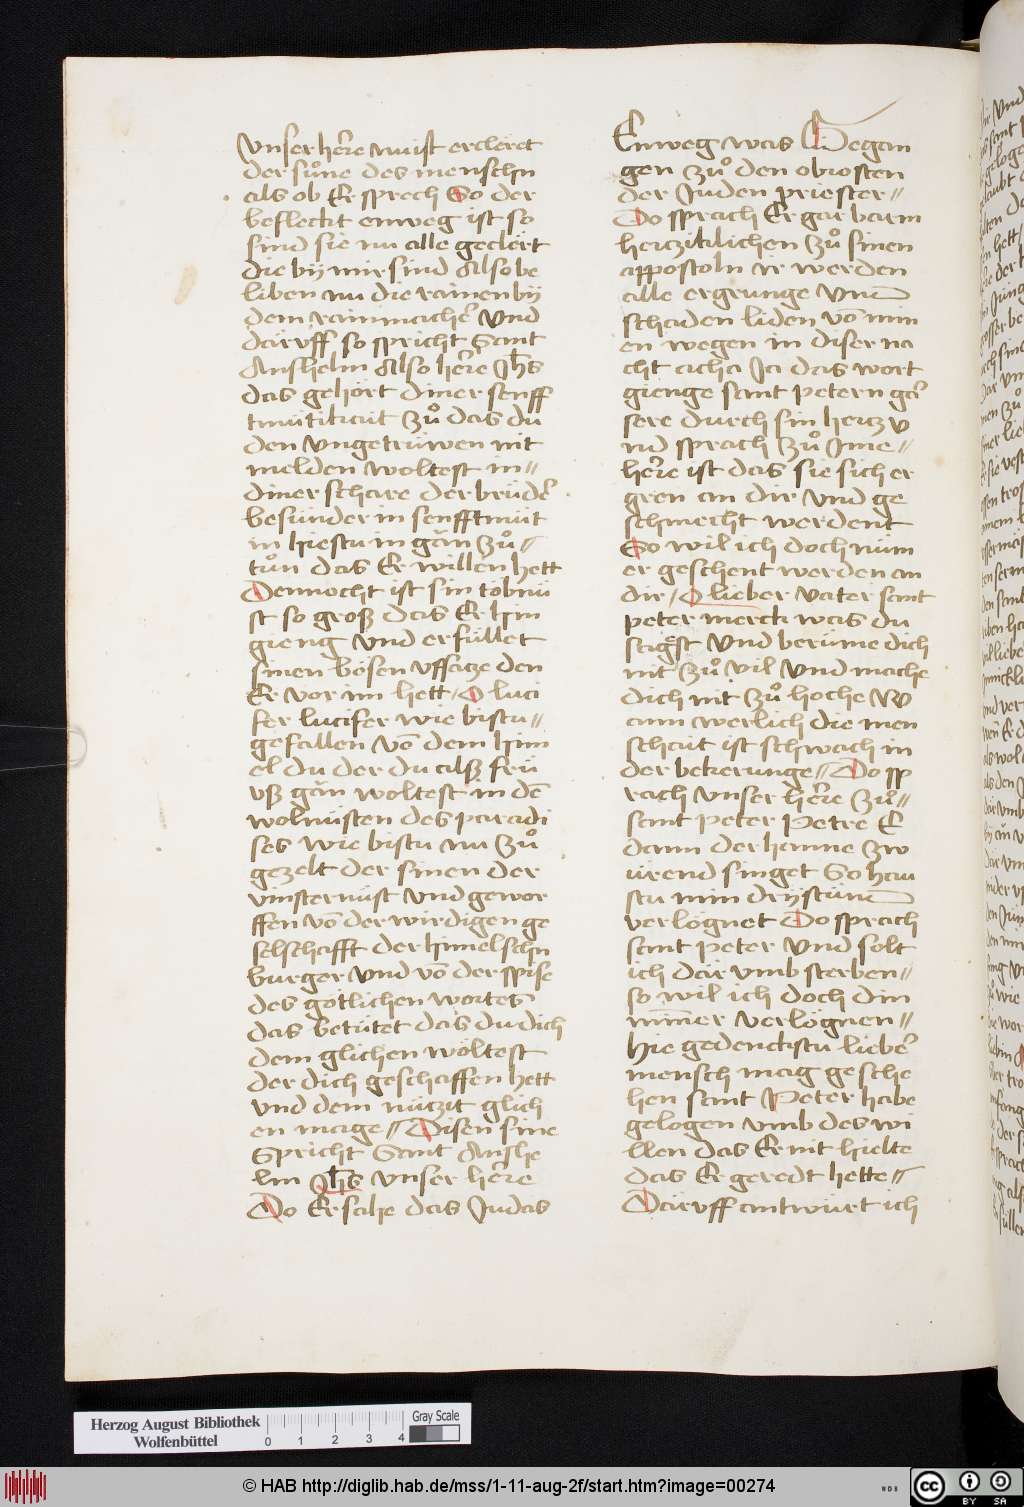 vnser her̄e nu ist ercleret
der sůne des menschn
als ob Er sprech So der
befleckt enweg ist so
sind sie nu alle geclert
die by mir sind Also be
liben nu die rainen by
dem rainmacher̄ Vnd
dārvff so spricht Sant
Anshelm Also her̄e Jhs̄
das gehört diner senff
tmütikait zů das du
den vngetrüwen nit
melden woltest in〃
diner schare der brüder̄
besünder in senfftmüt
in hiestu in gān zů〃
tůn das Er willen hett
Dennocht ist sin töbnü
st so groß das Er hin
gieng vnd erfüllet
sinen bösen vffsacze den
Er vor im hett / O luci
fer lucifer wie bistu〃
gefallen vō dem him
el du der du alß frü
vß gān woltest in dē
wolnüsten des paradi
ses wie bistu nu zů
gezelt der sinen der
vinsternüst vnd gewor
ffen vō der wirdigen ge
selschafft der himelschn
burger vnd vō der spise
des götlichen wortes
das betütet das du dich
dem glichen wöltest
der dich geschaffen hett
vnd dem nüczit glich
en mage〃 Disen sine
Spricht Sant Anshe
lm Jhs̄ vnser her̄e
Do Er sahe das Judas
Enweg was Gegan
gen zů den obrosten
der Juden priester〃
Do sprach Er gar barm
herziklichen zů sinen
appostoln ir werden
alle ergrunge vnd
schaden liden vō min
en wegen in diser na
cht acha Ja das wort
gienge sant petern gar̄
sere durch sin hercz v
nd sprach zů Jme〃
her̄e ist das sie sich er
gren an dir vnd ge
schwecht werdent
So wil ich doch nüm
er geschent werden an
dir / O lieber vater sant
peter merck was du
sagst vnd berüme dich
nit zů vil vnd mache
dich nit zů hoche W
ann werlich die men
schait ist schwach in
der bekerunge〃 Do sp
rach vnser her̄e zů〃
sant peter Petre E
dann der hanne zw
ürend singet So hau
stu min drystünd
verlögnet Do sprach
sant peter vnd solt
ich dār vmb sterben〃
so wil ich doch din
nim̄er verlögnen〃
Hie gedenckstu lieber̄
mensch mag gesche
hen sant Peter habe
gelogen vmb des wi
llen das Er nit hielte
das Er geredt hette〃
Dārvff antwürt ich
Herzog August Bibliothek
Wolfenbüttel
0 1 2 3 4
Gray Scale
© HAB http://diglib.hab.de/mss/1-11-aug-2f/start.htm?image=00274
WDB
cc BY SA